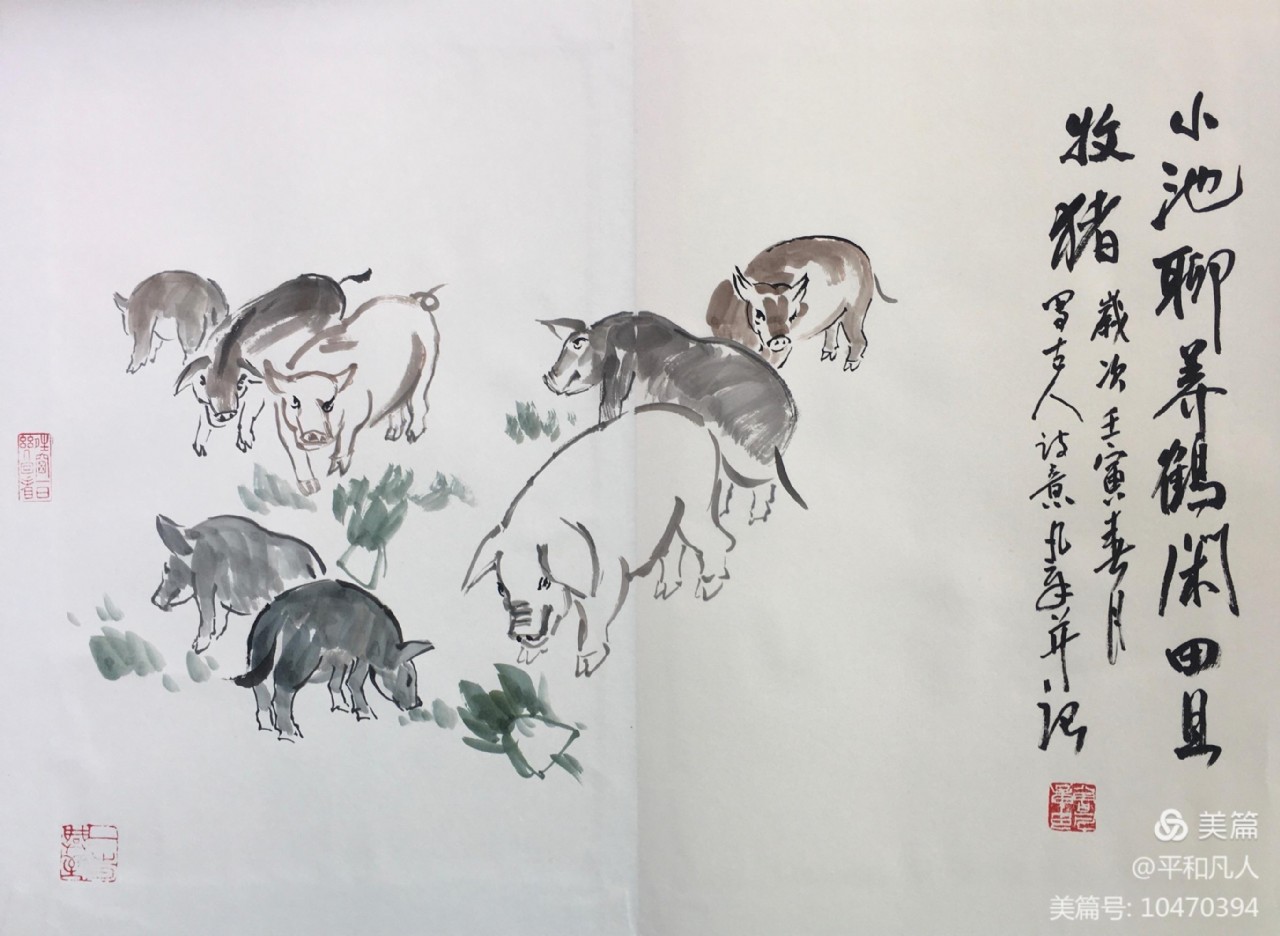 小池聊养鹤闲田且
牧猪
岁次壬寅春月
写古人诗意凡平并记
美篇
@平和凡人
美篇号: 10470394